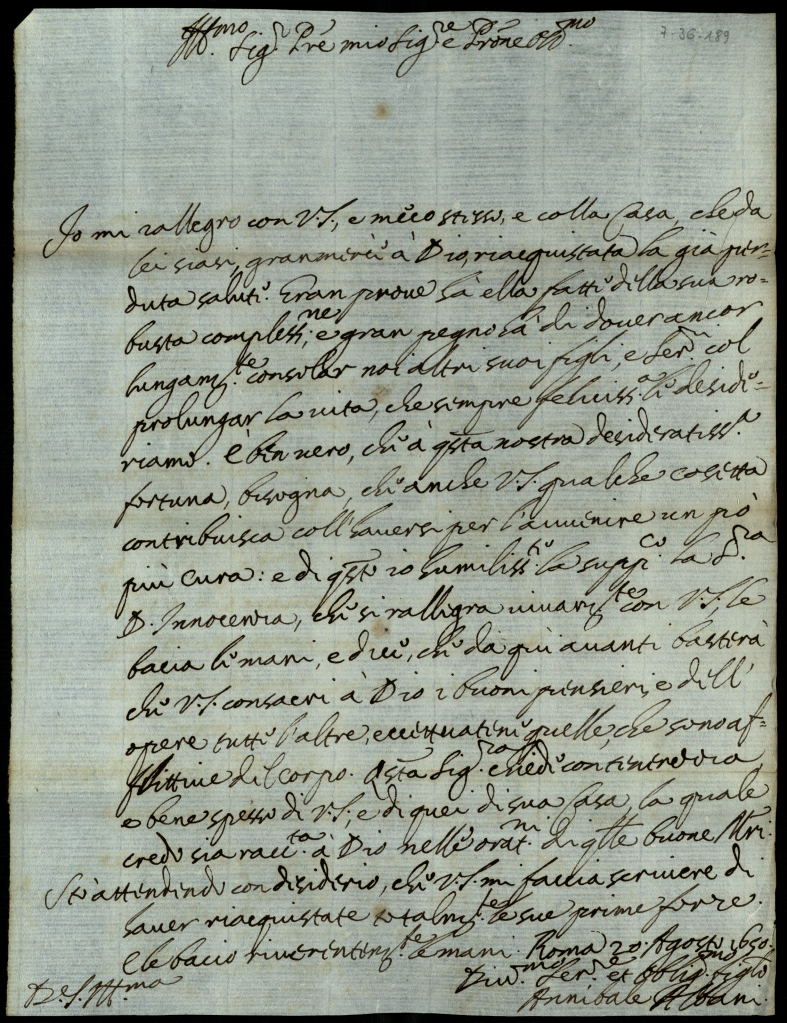 Ill.mo Sig.r Pre mio Sig.re e Prone Oss.mo
7-36-189
Io mi rallegro con V.S., e meco stesso, e colla Casa, che da
lei siasi, gran mercè à Dio, riacquistata la già per=
duta salute. Gran prove hà ella fatte della sua ro=
busta compless.ne; e gran pegno hà di dover ancor
lungam.te consolar noi altri suoi figli, e Ser.ri col
prolungar la vita, che sempre feliciss.a le deside=
riamo. È ben vero, che à qsta nostra desideratiss.a
fortuna, bisogna, che anche V.S. qualche cosetta
contribuisca coll'haversi per l'avvenire un pò
più cura: e di qsto io humiliss.te la supp.co. La S.ra
D. Innocenza, che si rallegra vivam.te con V.S., le
bacia le mani, e dice, che da quì avanti basterà
che V.S. consacri à Dio i buoni pensieri, e dell'
opere tutte l'altre, eccettuatene quelle, che sono af=
flittive del corpo. Qsta Sig.ra chiede contentrezza
e bene spesso di V.S., e di quei di sua Casa, la quale
credo sia racc.ta à Dio nelle orat.ni di qlle buone Mri.
Stò attendendo con desiderio, che V.S. mi faccia scrivere di
haver riacquistate totalm.te le sue prime forze.
E le bacio riverentem.te le mani. Roma 20 Agosto 1650.
Di V.S. Ill.ma
Div.mo Ser.re et Oblig.mo figlio
Annibale Albani.